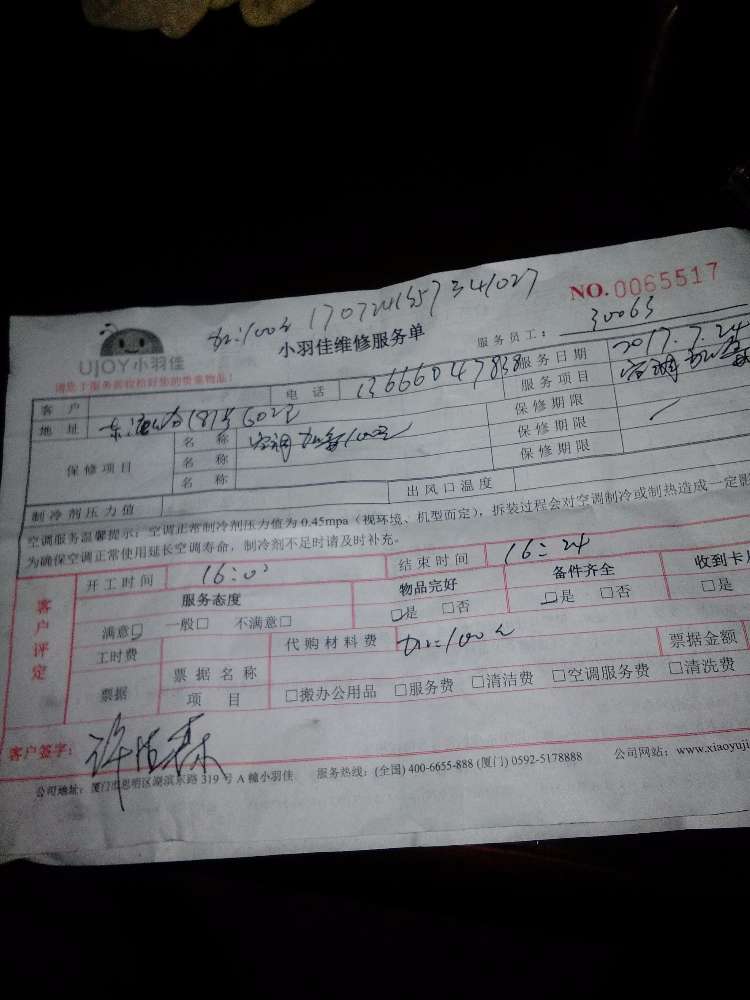 170724155734027
NO.0065517
UJOY小羽佳
小羽佳维修服务单
服务员工：30063
请您于服务前收检好您的贵重物品！
客户 电话 13666047838 服务日期 2017.7.24
地址 181号602 服务项目 空调
保修项目 名称 空调 100元 保修期限
名称 保修期限
名称 保修期限
制冷剂压力值 出风口温度
空调服务温馨提示：空调正常制冷剂压力值为0.45mpa（视环境、机型而定），拆装过程会对空调制冷或制热造成一定影
为确保空调正常使用延长空调寿命，制冷剂不足时请及时补充。
客户评定
开工时间 结束时间 16:24
服务态度 物品完好 备件齐全 收到卡
满意□ 一般□ 不满意□ □是 □否 □是 □否 □是
工时费 代购材料费 100元
票据 票据名称 票据金额
项目 □搬办公用品 □服务费 □清洁费 □空调服务费 □清洗费
客户签字：
公司地址：厦门市思明区湖滨东路319号A幢小羽佳 服务热线：(全国) 400-6655-888 (厦门) 0592-5178888 公司网站：www.xiaoyuji